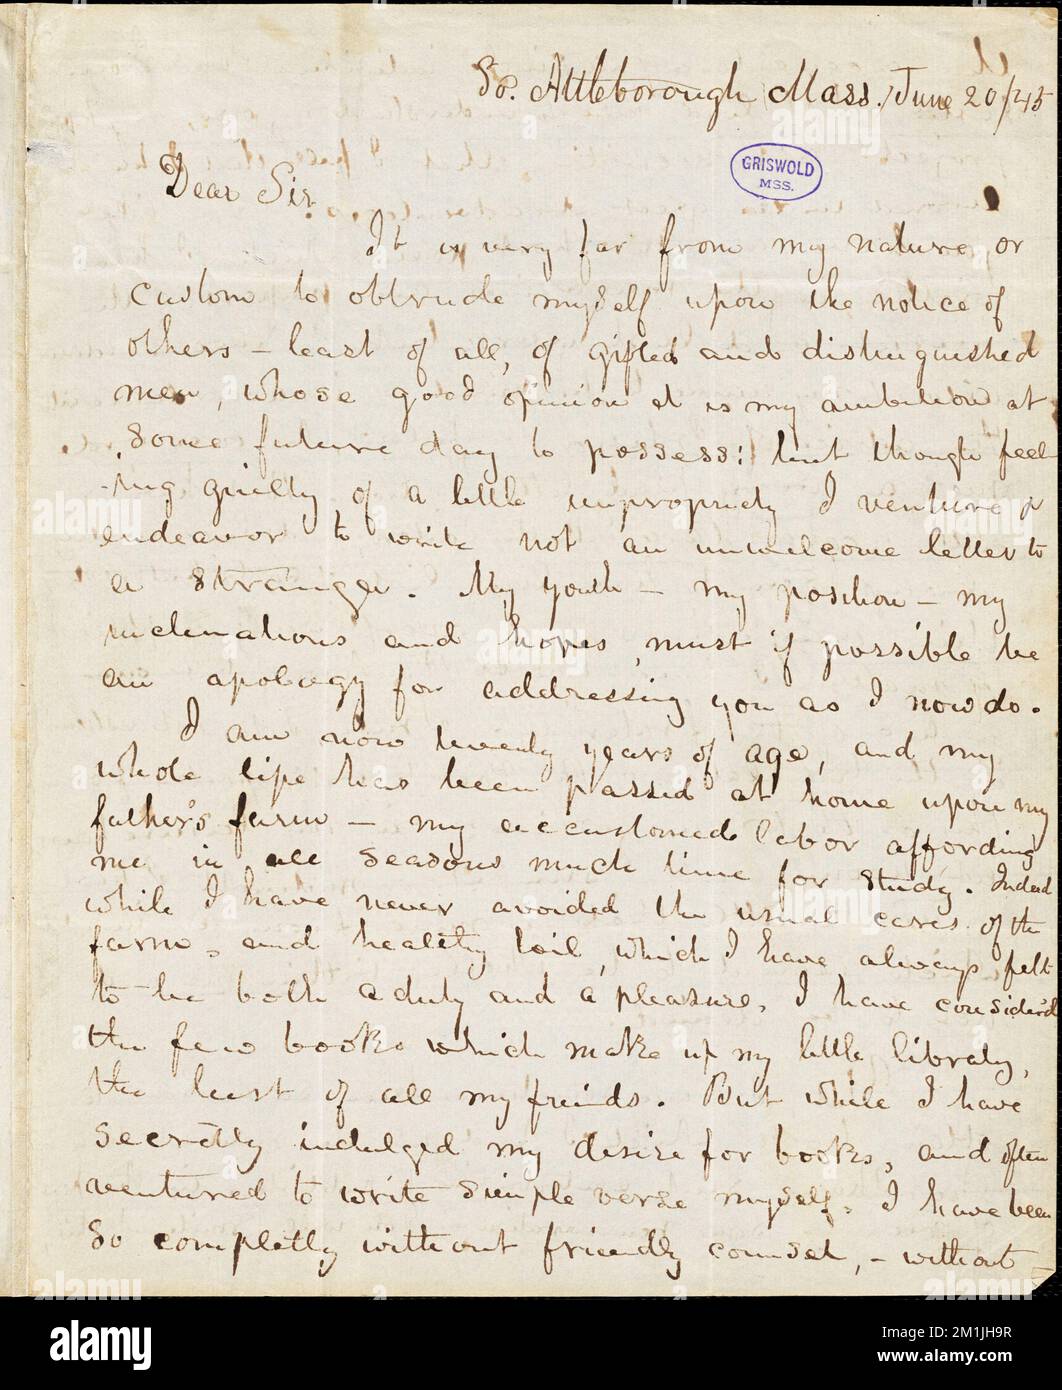 So. Attleborough Mass. June 20/45
GRISWOLD
MSS.
Dear Sir.
It is very far from my nature or
custom to obtrude myself upon the notice of
others – least of all, of gifted and distinguished
men, whose good opinion it is my ambition at
some future day to possess: but though feel-
-ing guilty of a little impropriety I venture &
endeavor to write not an unwelcome letter to
a stranger. My youth – my position – my
inclinations and hopes, must if possible be
an apology for addressing you as I now do.
I am now twenty years of age, and my
whole life has been passed at home upon my
father's farm – my accustomed labor affording
me in all seasons much time for study. Indeed
while I have never avoided the usual cares of the
farm, and healthy toil, which I have always felt
to be both a duty and a pleasure, I have consider'd
the few books which make up my little library,
the best of all my friends. But while I have
secretly indulged my desire for books, and often
ventured to write simple verse myself, I have been
so completly without friendly counsel, – without
alamy
Image ID: 2M1JH9R
www.alamy.com